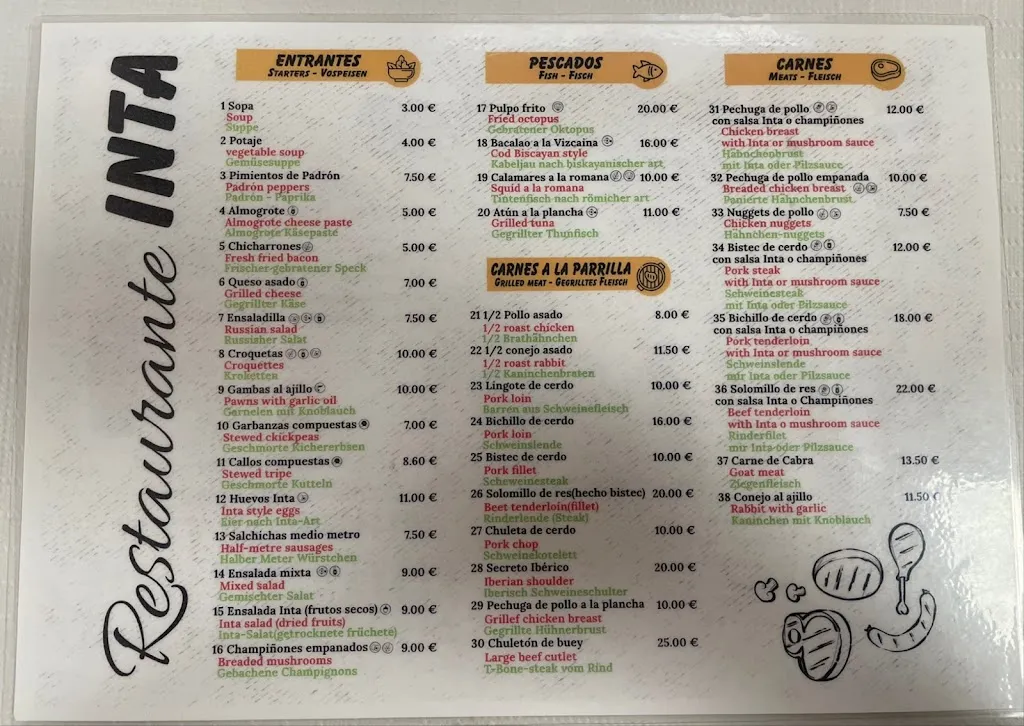 Restaurante INTA
ENTRANTES
STARTERS - VOSPEISEN
1 Sopa 3.00 €
Soup
Suppe
2 Potaje 4.00 €
vegetable soup
Gemüsesuppe
3 Pimientos de Padrón 7.50 €
Padrón peppers
Padrón - Paprika
4 Almogrote 5.00 €
Almogrote cheese paste
Almogrote Käsepaste
5 Chicharrones 5.00 €
Fresh fried bacon
Frischer gebratener Speck
6 Queso asado 7.00 €
Grilled cheese
Gegrillter Käse
7 Ensaladilla 7.50 €
Russian salad
Russisher Salat
8 Croquetas 10.00 €
Croquettes
Kroketten
9 Gambas al ajillo 10.00 €
Pawns with garlic oil
Garnelen mit Knoblauch
10 Garbanzas compuestas 7.00 €
Stewed ckickpeas
Geschmorte Kichererbsen
11 Callos compuestas 8.60 €
Stewed tripe
Geschmorte Kutteln
12 Huevos Inta 11.00 €
Inta style eggs
Eier nach Inta-Art
13 Salchichas medio metro 7.50 €
Half-metre sausages
Halber Meter Würstchen
14 Ensalada mixta 9.00 €
Mixed salad
Gemischter Salat
15 Ensalada Inta (frutos secos) 9.00 €
Inta salad (dried fruits)
Inta-Salat(getrocknete früchete)
16 Champiñones empanados 9.00 €
Breaded mushrooms
Gebachene Champignons
PESCADOS
FISH - FISCH
17 Pulpo frito 20.00 €
Fried octopus
Gebratener Oktopus
18 Bacalao a la Vizcaina 16.00 €
Cod Biscayan style
Kabeljau nach biskayanischer art
19 Calamares a la romana 10.00 €
Squid a la romana
Tintenfisch nach römicher art
20 Atún a la plancha 11.00 €
Grilled tuna
Gegrillter Thunfisch
CARNES A LA PARRILLA
GRILLED MEAT - GEGRILLTES FLEISCH
21 1/2 Pollo asado 8.00 €
1/2 roast chicken
1/2 Brathähnchen
22 1/2 conejo asado 11.50 €
1/2 roast rabbit
1/2 Kaninchenbraten
23 Lingote de cerdo 10.00 €
Pork loin
Barren aus Schweinefleisch
24 Bichillo de cerdo 16.00 €
Pork loin
Schweinslende
25 Bistec de cerdo 10.00 €
Pork fillet
Schweinesteak
26 Solomillo de res(hecho bistec) 20.00 €
Beet tenderloin(fillet)
Rinderlende (Steak)
27 Chuleta de cerdo 10.00 €
Pork chop
Schweinekotelett
28 Secreto Ibérico 20.00 €
Iberian shoulder
Iberisch Schweineschulter
29 Pechuga de pollo a la plancha 10.00 €
Grillef chicken breast
Gegrillte Hühnerbrust
30 Chuletón de buey 25.00 €
Large beef cutlet
T-Bone-steak vom Rind
CARNES
MEATS - FLEISCH
31 Pechuga de pollo 12.00 €
con salsa Inta o champiñones
Chicken breast
with Inta or mushroom sauce
Hähnchenbrust
mit Inta oder Pilzsauce
32 Pechuga de pollo empanada 10.00 €
Breaded chicken breast
Panierte Hähnchenbrust
33 Nuggets de pollo 7.50 €
Chicken nuggets
Hähnchen-nuggets
34 Bistec de cerdo 12.00 €
con salsa Inta o champiñones
Pork steak
with Inta or mushroom sauce
Schweinesteak
mit Inta oder Pilzsauce
35 Bichillo de cerdo 18.00 €
con salsa Inta o champiñones
Pork tenderloin
with Inta or mushroom sauce
Schweinslende
mir Inta oder Pilzsauce
36 Solomillo de res 22.00 €
con salsa Inta o Champiñones
Beef tenderloin
with Inta or mushroom sauce
Rinderfilet
mir Inta oder Pilzsauce
37 Carne de Cabra 13.50 €
Goat meat
Ziegenfleisch
38 Conejo al ajillo 11.50 €
Rabbit with garlic
Kaninchen mit Knoblauch